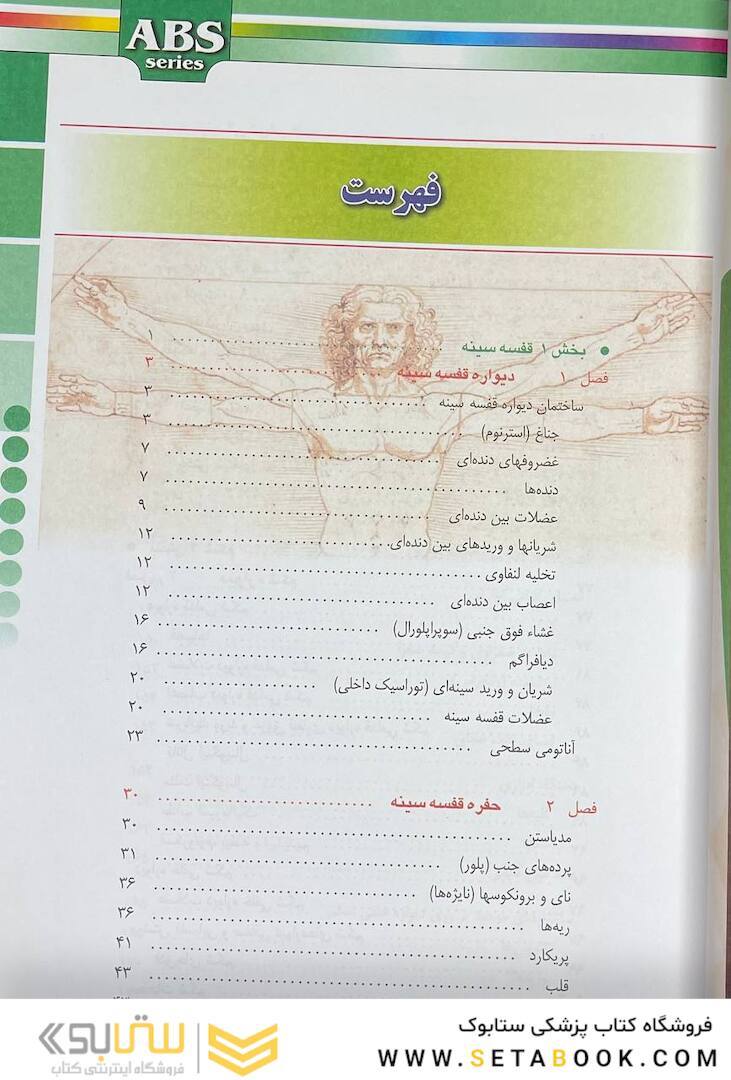 ABS
series
فهرست
● بخش ۱ قفسه سینه ۱
فصل ۱ دیواره قفسه سینه ۳
ساختمان دیواره قفسه سینه ۳
جناغ (استرنوم) ۳
غضروفهای دنده‌ای ۷
دنده‌ها ۷
عضلات بین دنده‌ای ۹
شریانها و وریدهای بین دنده‌ای ۱۲
تخلیه لنفاوی ۱۲
اعصاب بین دنده‌ای ۱۲
غشاء فوق جنبی (سوپراپلورال) ۱۶
دیافراگم ۱۶
شریان و ورید سینه‌ای (توراسیک داخلی) ۲۰
عضلات قفسه سینه ۲۰
آناتومی سطحی ۲۳
فصل ۲ حفره قفسه سینه ۳۰
مدیاستن ۳۰
پرده‌های جنب (پلور) ۳۱
نای و برونکوسها (نایژه‌ها) ۳۶
ریه‌ها ۳۶
پریکارد ۴۱
قلب ۴۳
فروشگاه کتاب پزشکی ستابوک
WWW.SETABOOK.COM
ستابوک
فروشگاه اینترنتی کتاب